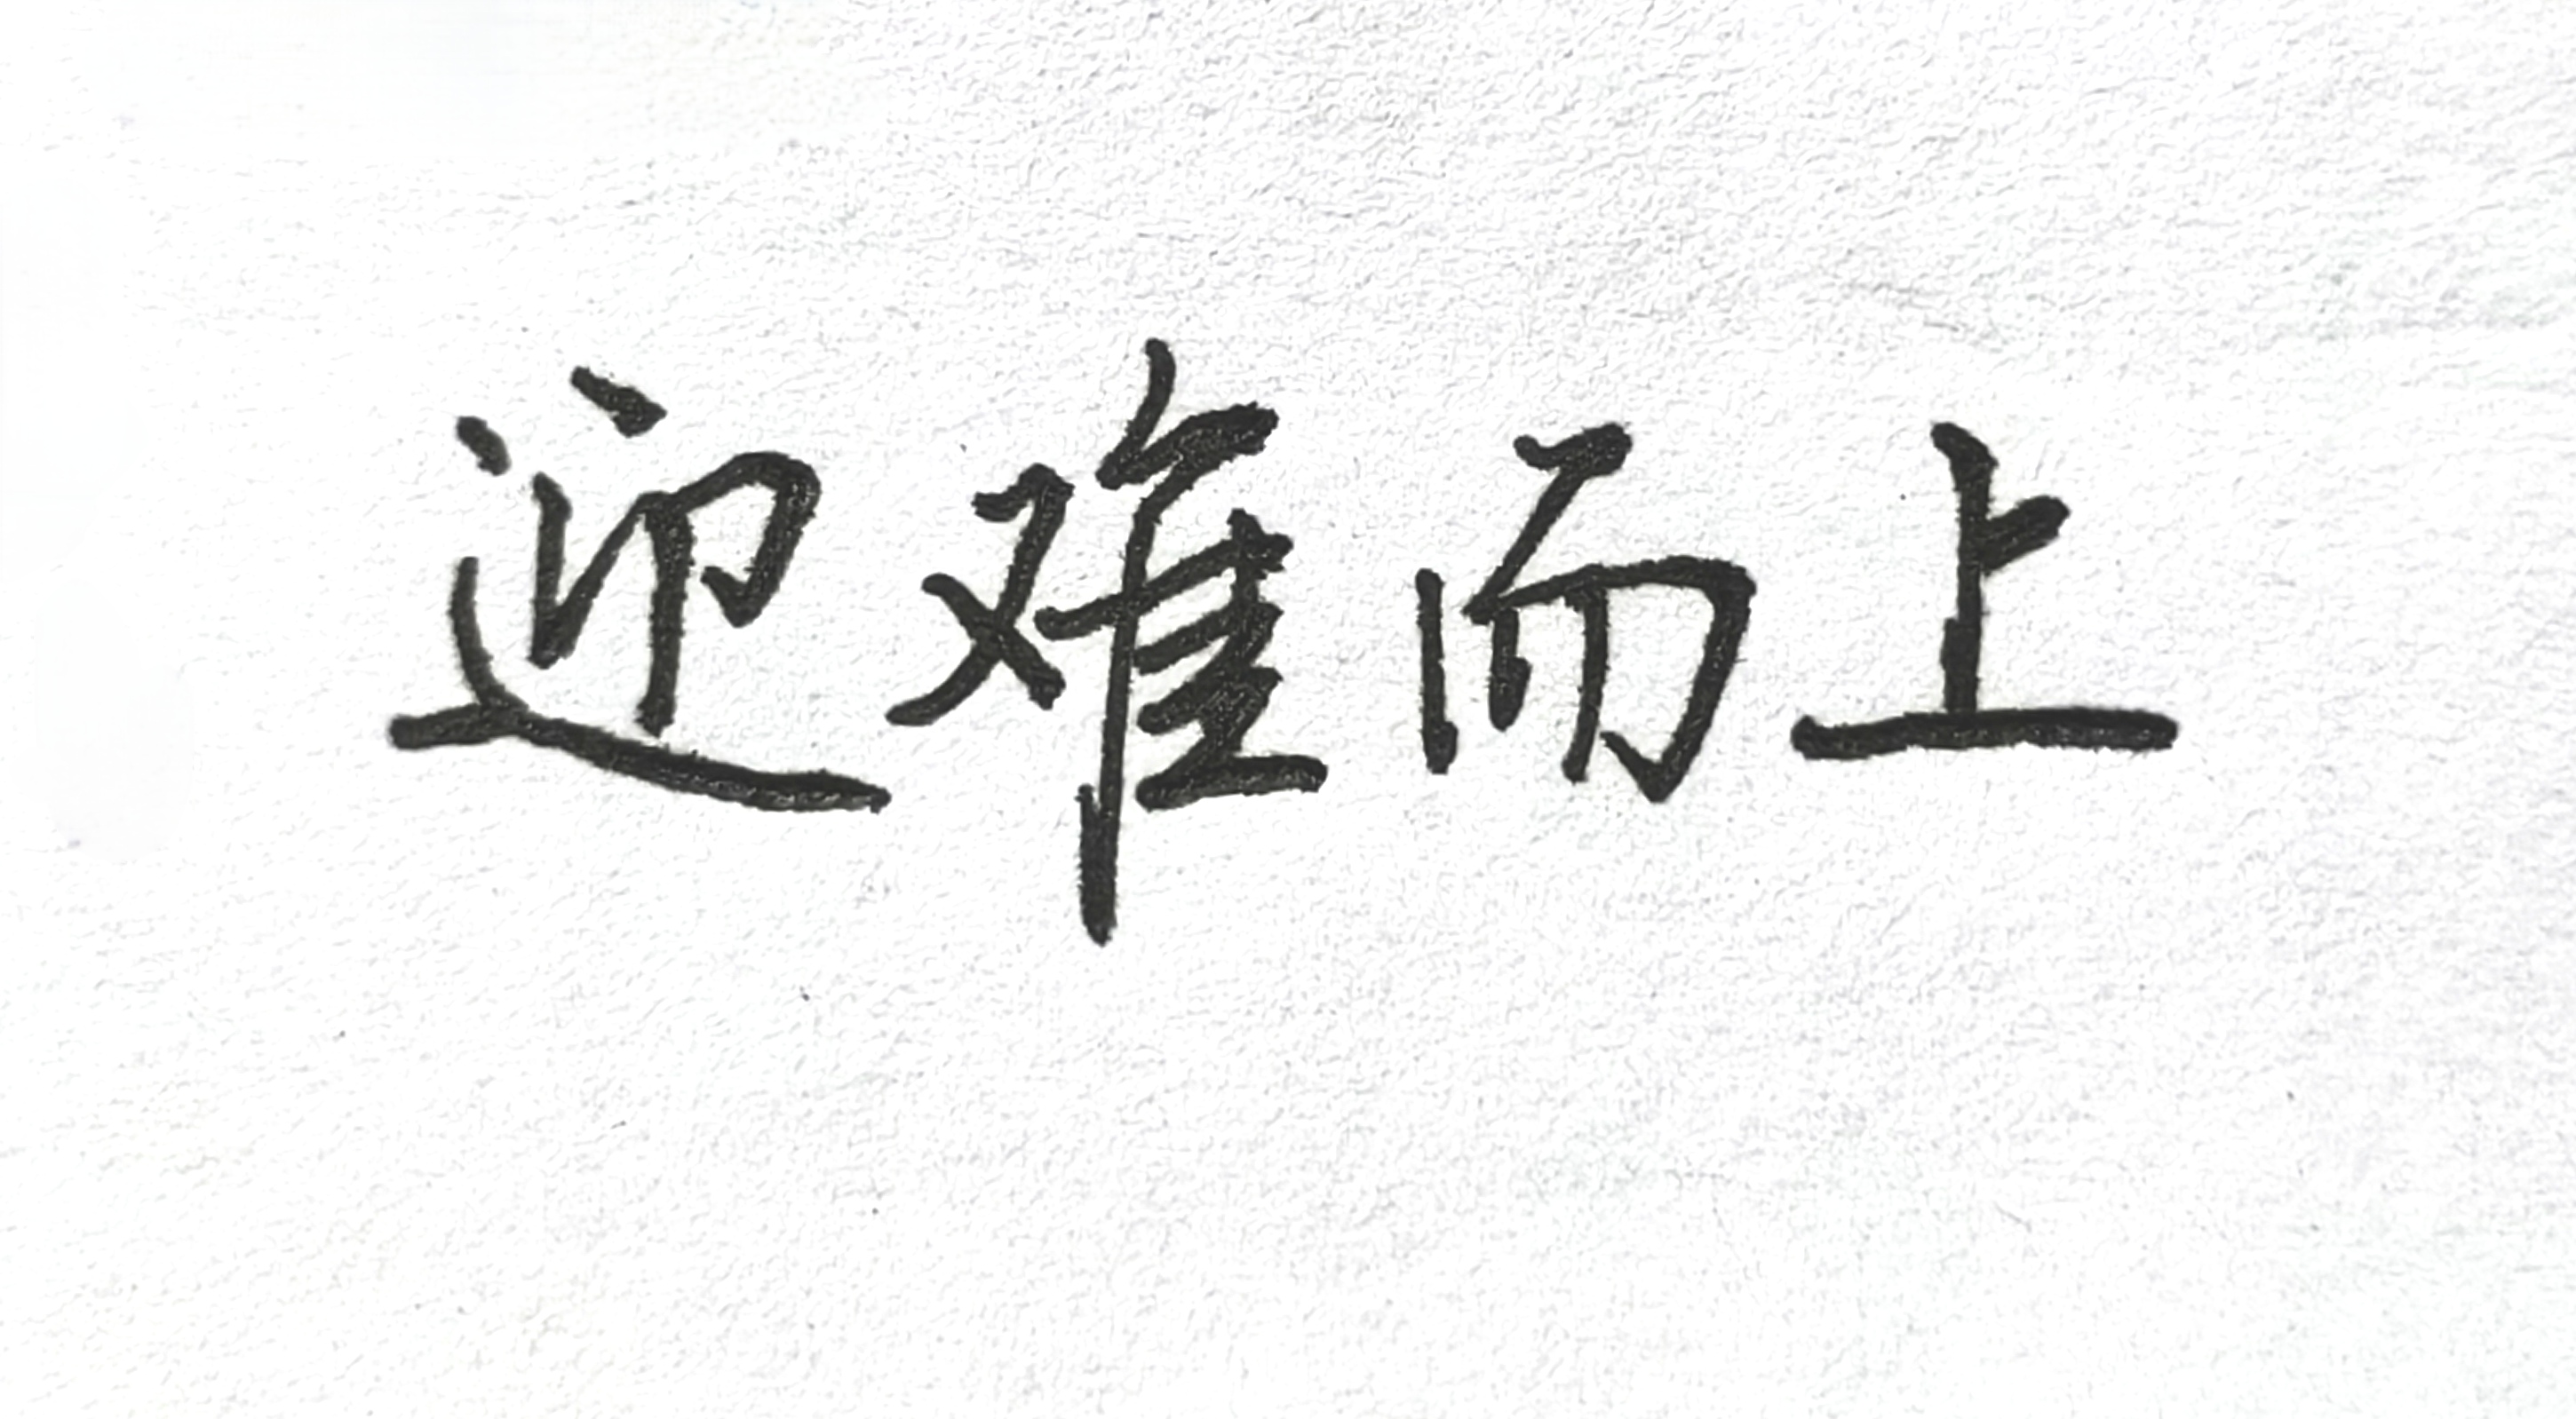 迎难而上